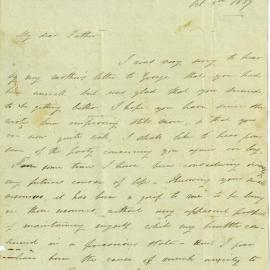 My dear Father
I was very sorry to hear
by my mother's letter to George that you had
been unwell but was glad that you seemed
to be getting better. I hope you have since she
wrote been improving still more, & that you
are now quite well. I should like to hear from
some of the party concerning you again in
some time I have been considering
my future course of life. Knowing your
it has been a grief to me to be living
in this manner, without any apparent
of maintaining myself, while my brother
in a state that I
have been the cause of much anxiety to